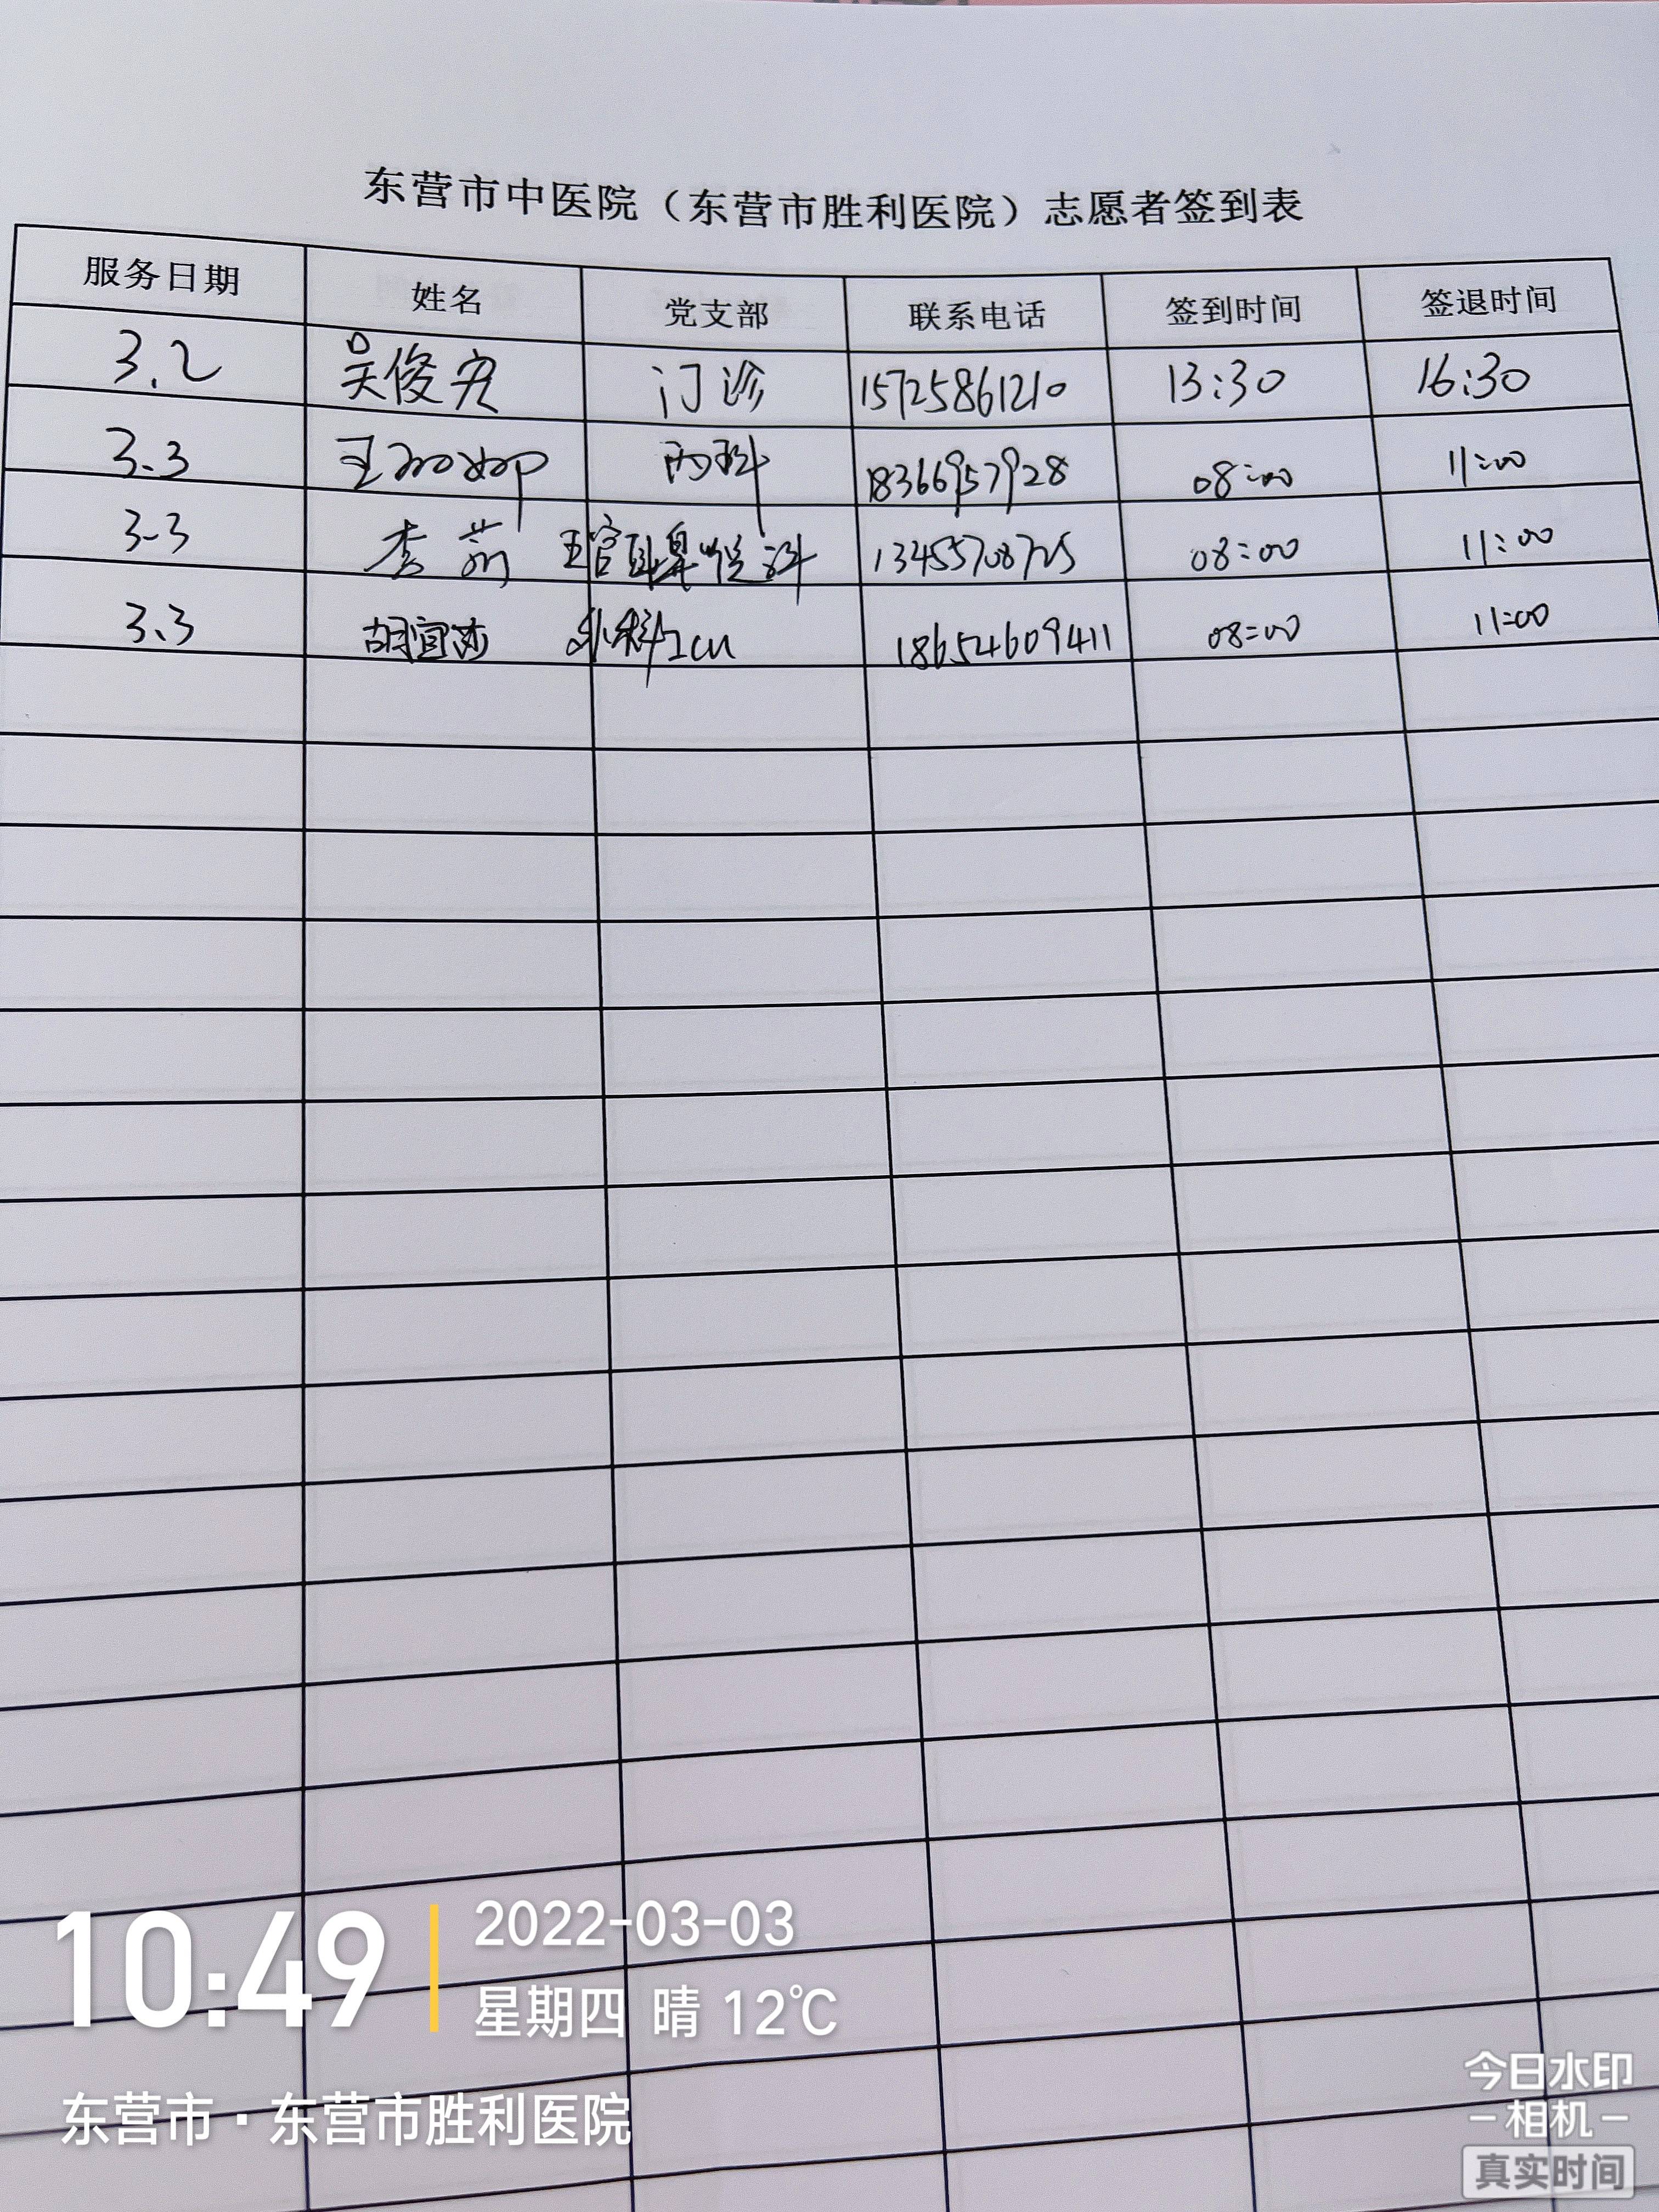 东营市中医院（东营市胜利医院）志愿者签到表
服务日期 姓名 党支部 联系电话 签到时间 签退时间
3.2 吴俊宏 门诊 15725861210 13:30 16:30
3.3 王 内科 18366957928 08:00 11:00
3.3 李 五官耳鼻喉科 13455708725 08:00 11:00
3.3 胡宜莎 外科ICU 18654609411 08:00 11:00
10:49
2022-03-03
星期四 晴 12℃
东营市·东营市胜利医院
今日水印
相机
真实时间